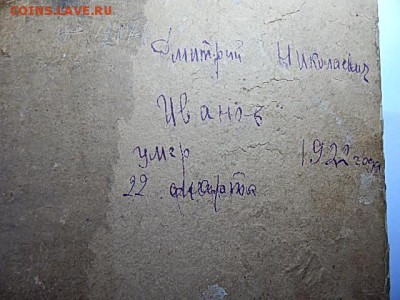 COINS.LAVE.RU
Дмитрий Николаевич
Ивановъ
умер 1922 года
22 марта